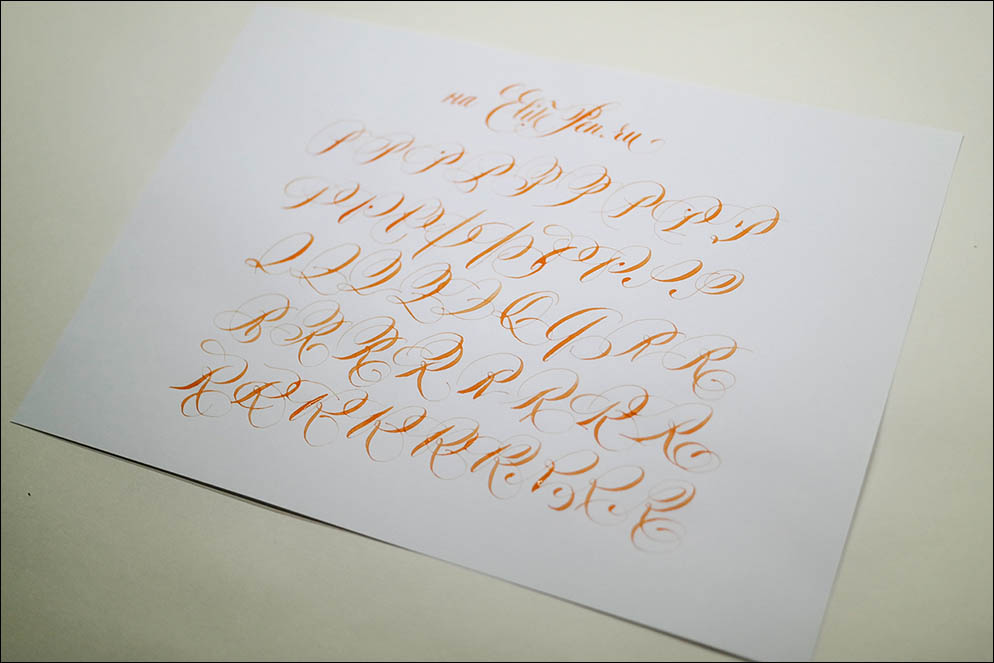 на ElitPen.ru
P P P P P P P P P
P P P P P P P P P
Q Q Q Q Q Q Q R R
R R R R R R R R
R R R R R R R R R